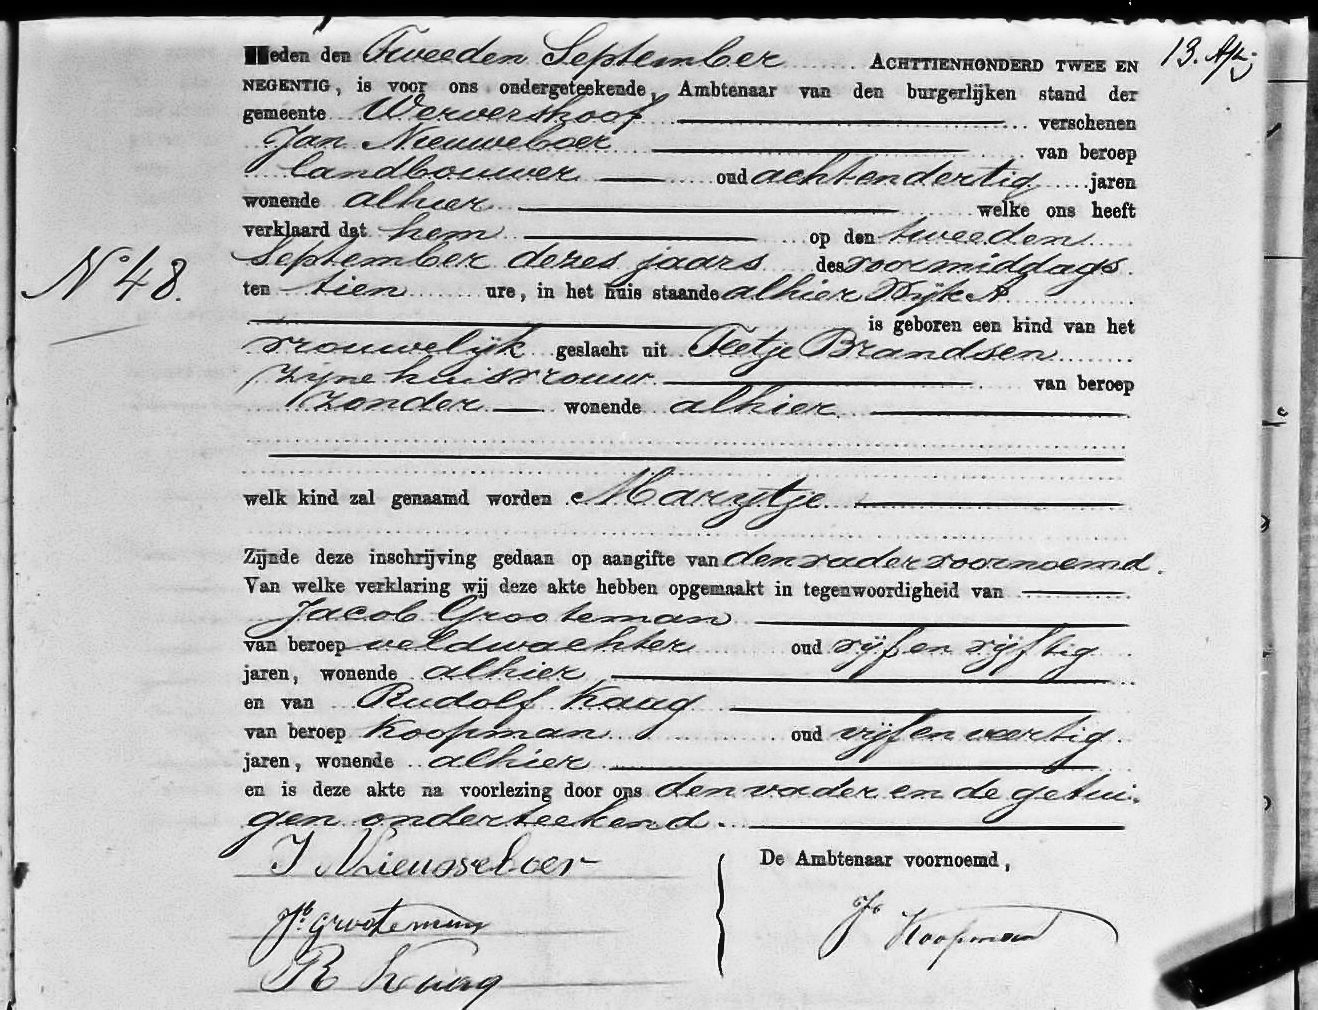 13.
Heden den Tweeden September ACHTTIENHONDERD TWEE EN
NEGENTIG, is voor ons ondergeteekende, Ambtenaar van den burgerlijken stand der
gemeente Wervershoof verschenen
Jan Nieuweboer van beroep
landbouwer oud achtendertig jaren
wonende alhier welke ons heeft
verklaard dat hem op den tweeden
September dezes jaars des voormiddags
No 48.
ten tien ure, in het huis staande alhier Wijk A
is geboren een kind van het
vrouwelijk geslacht uit Teetje Brandsen
zijne huisvrouw van beroep
zonder wonende alhier
welk kind zal genaamd worden Marijtje
Zijnde deze inschrijving gedaan op aangifte van den vader voornoemd.
Van welke verklaring wij deze akte hebben opgemaakt in tegenwoordigheid van
Jacob Grooteman
van beroep veldwachter oud vijf en vijftig
jaren, wonende alhier
en van Rudolf Kaag
van beroep Koopman oud vijf en veertig
jaren, wonende alhier
en is deze akte na voorlezing door ons den vader en de getui-
gen onderteekend.
J Nieuweboer
De Ambtenaar voornoemd,
Jb. Grooteman
Jb Koopman
R Kaag